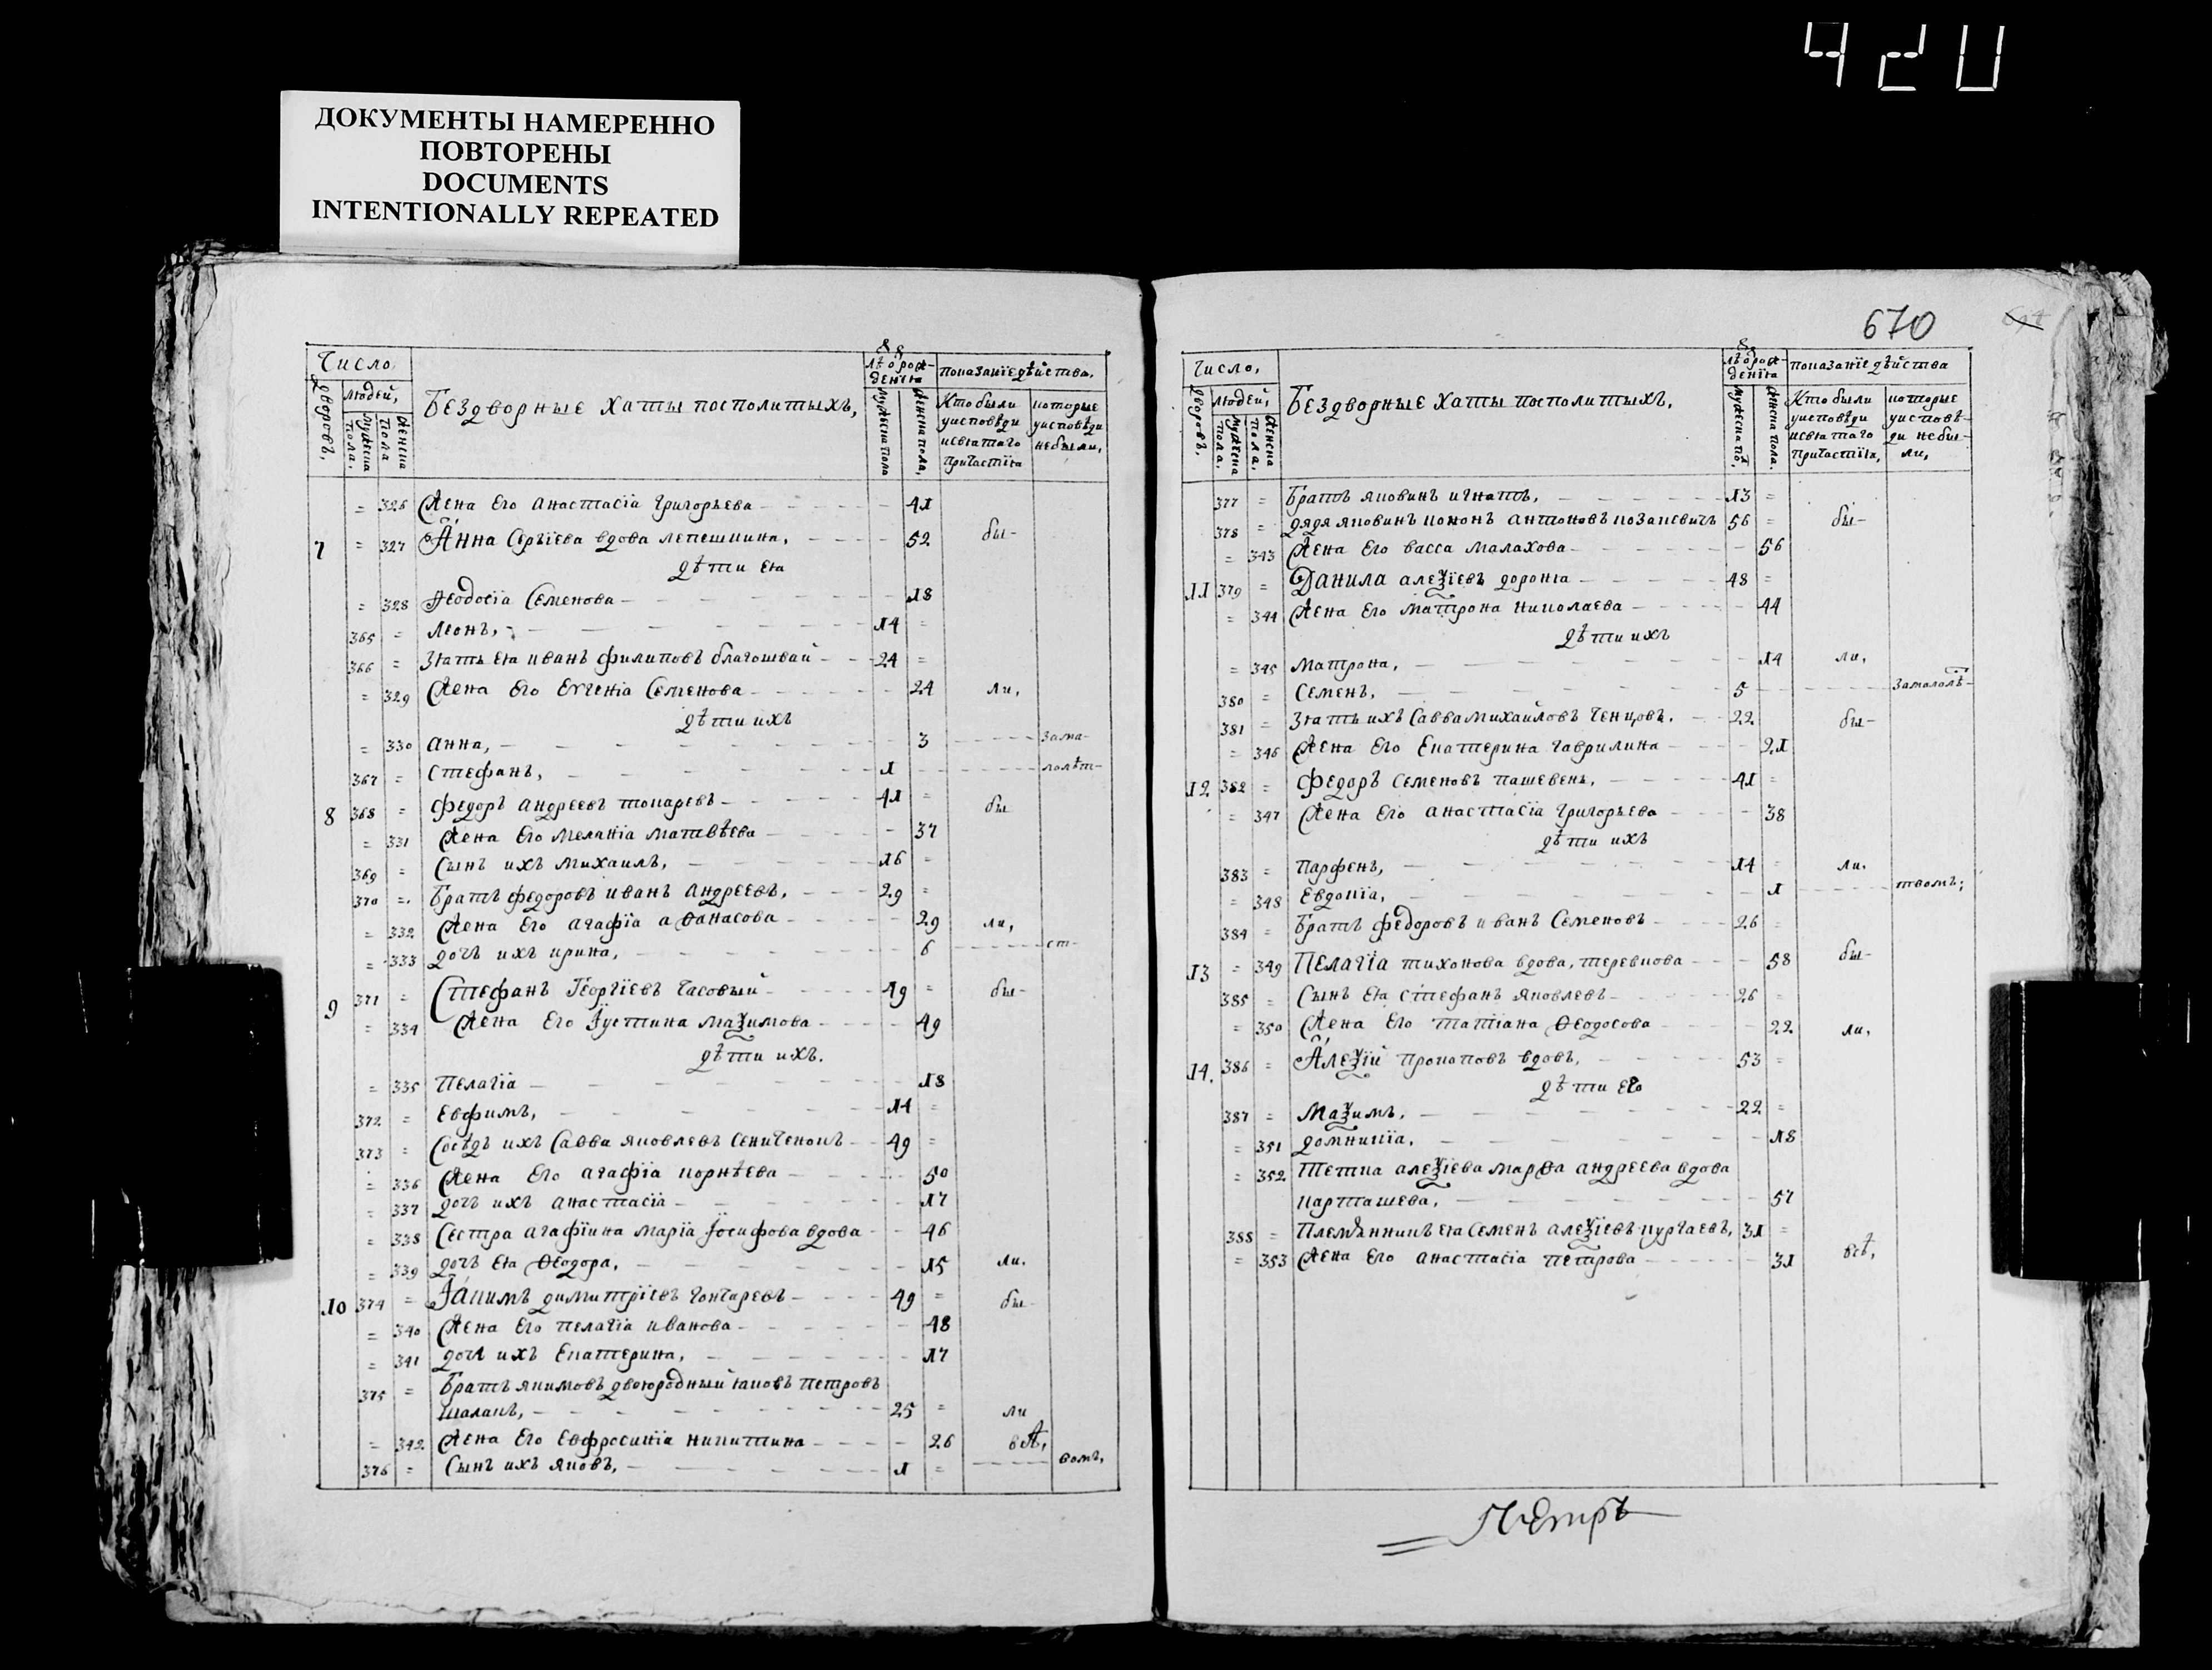 420
ДОКУМЕНТЫ НАМЕРЕННО
ПОВТОРЕНЫ
DOCUMENTS
INTENTIONALLY REPEATED
Число,
Дворовъ,
Людей,
Мужеска пола.
Женска пола
Бездворные хаты посполитыхъ,
Лѣ ѿ рождения
мужеска пола
женска пола,
показанїе дѣйства,
Кто были у исповѣди и святаго причастїя
которые у исповѣди не были,
= 326 Жена его Анастасїа Григорьева 41
7 = 327 Анна Сергїева вдова Лепешкина, 52 бы-
дѣти ея
= 328 Ѳеодосїа Семенова 18
365 = Леонъ, 14 =
366 = Зять ея Иванъ Филиповъ Благошвай 24 =
= 329 Жена его Евгенїа Семенова 24 ли,
дѣти ихъ
= 330 Анна, 3 зама-
367 = Стефанъ, 1 лолѣт-
8 368 = Федоръ Андреевъ Токаревъ 41 = бы
= 331 Жена его Меланїа Матвѣева 37
369 = Сынъ ихъ Михаилъ, 16 =
370 = Братъ Федоровъ Иванъ Андреевъ, 29 =
= 332 Жена его Агафїа Аѳанасова 29 ли,
= 333 дочь ихъ Ирина, 6 ст-
9 371 = Стефанъ Георгїевъ Часовый 49 = бы-
= 334 Жена его Іустина Маѯимова 49
дѣти ихъ.
= 335 Пелагїа 18
372 = Евфимъ, 14 =
373 = Сосѣдъ ихъ Савва Яковлевъ Сениченокъ 49 =
= 336 Жена его Агафїа Корнѣева 50
= 337 дочь ихъ Анастасїа 17
= 338 Сестра Агафїина Марїа Іосифова вдова 46
= 339 дочь ея Ѳеодора, 15 ли.
10 374 = Іакимъ Димитрїевъ Гончаревъ 49 = бы-
= 340 Жена его Пелагїа Иванова 48
= 341 дочь ихъ Екатерина, 17
375 = Братъ Якимовъ двоюродный Іаковъ Петровъ
Шалапъ, 25 = ли
= 342 Жена его Евфросинїа Никитина 26 всѣ,
376 = Сынъ ихъ Яковъ, 1 = вомъ,
670
Число,
Дворовъ,
Людей,
Мужеска пола.
Женска пола.
Бездворные хаты посполитыхъ,
Лѣ ѿ рождения
мужеска по,
женска пола.
показанїе дѣйства
Кто были у исповѣди и святаго причастїя,
которые у исповѣди не были,
377 = Братъ Яковинъ Игнатъ, 13 =
378 = дядя Яковинъ Кононъ Антоновъ Козакевичъ 56 = бы-
= 343 Жена его Васса Малахова 56
11 379 = Данила Алеѯїевъ Доронга 48 =
= 344 Жена его Матрона Николаева 44
дѣти ихъ
= 345 Матрона, 14 ли,
380 = Семенъ, 5 замалолѣ-
381 = Зять ихъ Савва Михайловъ Ченцовъ. 22 бы-
= 346 Жена его Екатерина Гаврилина 21
12 382 = Федоръ Семеновъ Пашевень, 41 =
= 347 Жена его Анастасїа Григорьева 38
дѣти ихъ
383 = Парфенъ, 14 = ли.
= 348 Евдокїа, 1 твомъ;
384 = Братъ Федоровъ Иванъ Семеновъ 26 =
13 = 349 Пелагїа Тихонова вдова, Теревкова 58 бы-
385 = Сынъ ея Стефанъ Яковлевъ 26 =
= 350 Жена его Татїана Ѳеодосова 22 ли,
14. 386 = Алеѯїй Прокоповъ вдовъ, 53 =
дѣти его
387 = Маѯимъ, 22 =
= 351 Домникїа, 18
= 352 Тетка Алеѯїева Марѳа Андреева вдова
Карташева, 57
388 = Племѧнникъ ея Семенъ Алеѯїевъ Кургаевъ, 31 =
= 353 Жена его Анастасїа Петрова 31 всѣ,
Петръ